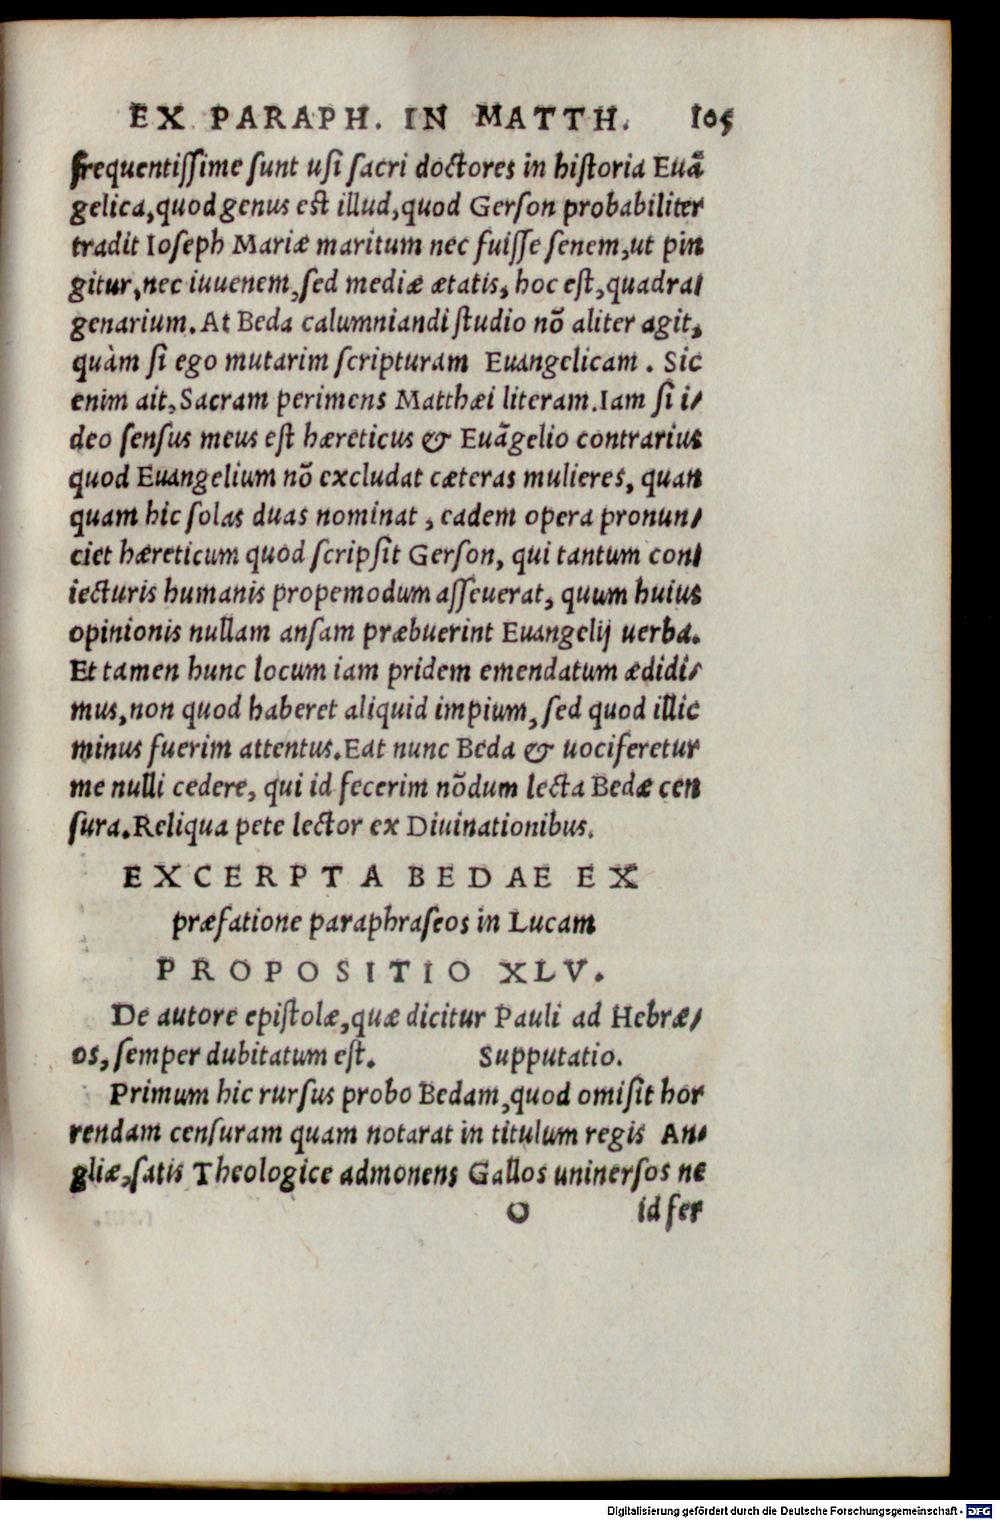 EX PARAPH. IN MATTH. 105
frequentiſſime ſunt uſi ſacri doctores in hiſtoria Euã
gelica, quod genus eſt illud, quod Gerſon probabiliter
tradit Ioſeph Mariæ maritum nec fuiſſe ſenem, ut pin
gitur, nec iuuenem, ſed mediæ ætatis, hoc eſt, quadra/
genarium. At Beda calumniandi ſtudio nõ aliter agit,
quàm ſi ego mutarim ſcripturam Euangelicam. Sic
enim ait, Sacram perimens Matthæi literam. Iam ſi i/
deo ſenſus meus eſt hæreticus & Euãgelio contrarius
quod Euangelium nõ excludat cæteras mulieres, quan
quam hic ſolas duas nominat, eadem opera pronun/
ciet hæreticum quod ſcripſit Gerſon, qui tantum con/
iecturis humanis propemodum aſſeuerat, quum huius
opinionis nullam anſam præbuerint Euangelij uerba.
Et tamen hunc locum iam pridem emendatum ædidi/
mus, non quod haberet aliquid impium, ſed quod illic
minus fuerim attentus. Eat nunc Beda & uociferetur
me nulli cedere, qui id fecerim nõdum lecta Bedæ cen
ſura. Reliqua pete lector ex Diuinationibus.
EXCERPTA BEDAE EX
præfatione paraphraſeos in Lucam
PROPOSITIO XLV.
De autore epiſtolæ, quæ dicitur Pauli ad Hebræ/
os, ſemper dubitatum eſt. Supputatio.
Primum hic rurſus probo Bedam, quod omiſit hor
rendam cenſuram quam notarat in titulum regis An/
gliæ, ſatis Theologice admonens Gallos uninerſos ne
O id fer
Digitalisierung gefördert durch die Deutsche Forschungsgemeinschaft - DFG